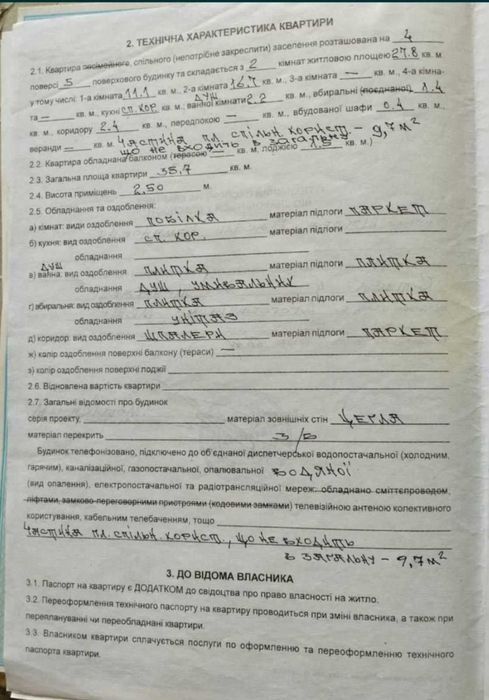 2. ТЕХНІЧНА ХАРАКТЕРИСТИКА КВАРТИРИ
2.1. Квартира посімейного, спільного (непотрібне закреслити) заселення розташована на 4
поверсі 5 поверхового будинку та складається з 2 кімнат житловою площею 27.8 кв. м
у тому числі: 1-а кімната 11.1 кв. м., 2-а кімната 16.7 кв. м., 3-а кімната — кв. м., 4-а кімна-
та — кв. м., кухні сп. кор. кв. м., ванної кімнати душ 2.2 кв. м., вбиральні (поєднаної) 1.4
кв. м., коридору 2.4 кв. м., передпокою — кв. м., вбудованої шафи 0.4 кв. м.,
веранди — кв. м. Частина пл. спільн. корист. – 9,7 м²
що не входить в загальну
2.2. Квартира обладнана балконом (терасою) — кв. м. лоджією 1.5 кв. м.)
2.3. Загальна площа квартири 35,7 кв. м.
2.4. Висота приміщень 2,50 м.
2.5. Обладнання та оздоблення:
а) кімнат: види оздоблення побілка матеріал підлоги паркет
б) кухня: вид оздоблення сп. кор. матеріал підлоги —
обладнання —
душ
в) ванна: вид оздоблення плитка матеріал підлоги плитка
обладнання душ, умивальник
г) вбиральня: вид оздоблення плитка матеріал підлоги плитка
обладнання унітаз
д) коридор: вид оздоблення шпалери матеріал підлоги паркет
ж) колір оздоблення поверхні балкону (тераси) —
з) колір оздоблення поверхні лоджії
2.6. Відновлена вартість квартири
2.7. Загальні відомості про будинок
серія проекту, матеріал зовнішніх стін цегла
матеріал перекрить з/б
Будинок телефонізовано, підключено до об'єднаної диспетчерської водопостачальної (холодним,
гарячим), каналізаційної, газопостачальної, опалювальної водяної
(вид опалення), електропостачальної та радіотрансляційної мереж. обладнано сміттєпроводом,
ліфтами, замково-переговорними пристроями (кодовими замками) телевізійною антеною колективного
користування, кабельним телебаченням, тощо
Частина пл. спільн. корист., що не входить
в загальну – 9,7 м²
3. ДО ВІДОМА ВЛАСНИКА
3.1. Паспорт на квартиру є ДОДАТКОМ до свідоцтва про право власності на житло.
3.2. Переоформлення технічного паспорту на квартиру проводиться при зміні власника, а також при
переплануванні чи переобладнані квартири.
3.3. Власником квартири сплачується послуги по оформленню та переоформленню технічного
паспорта квартири.